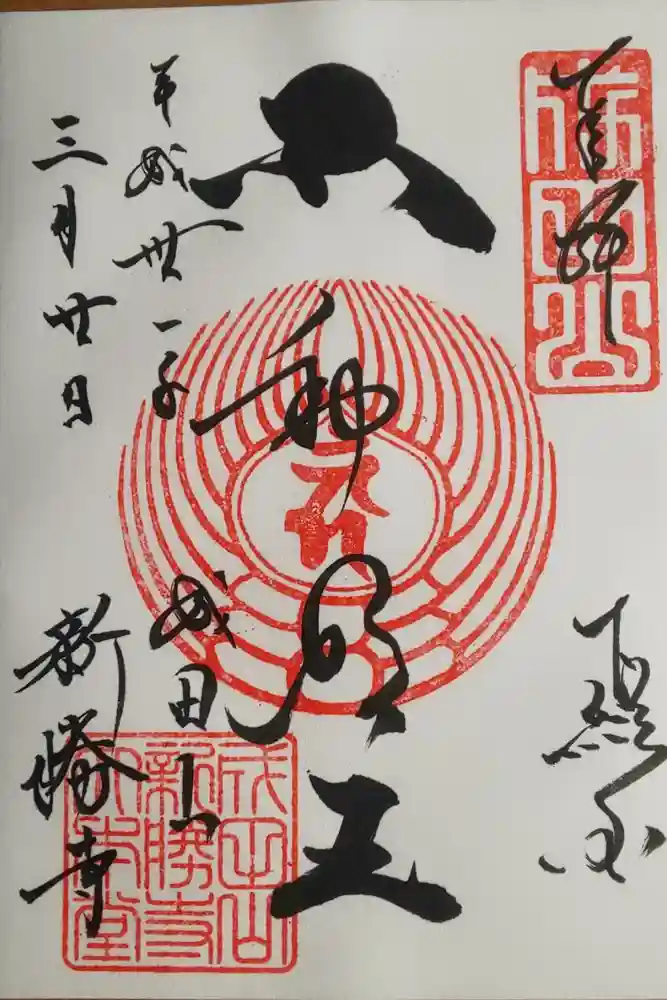 奉拝
下総国
不動明王
平成卅一年
三月廿日
成田山
新勝寺
成田山
成田山
新勝寺
大本堂